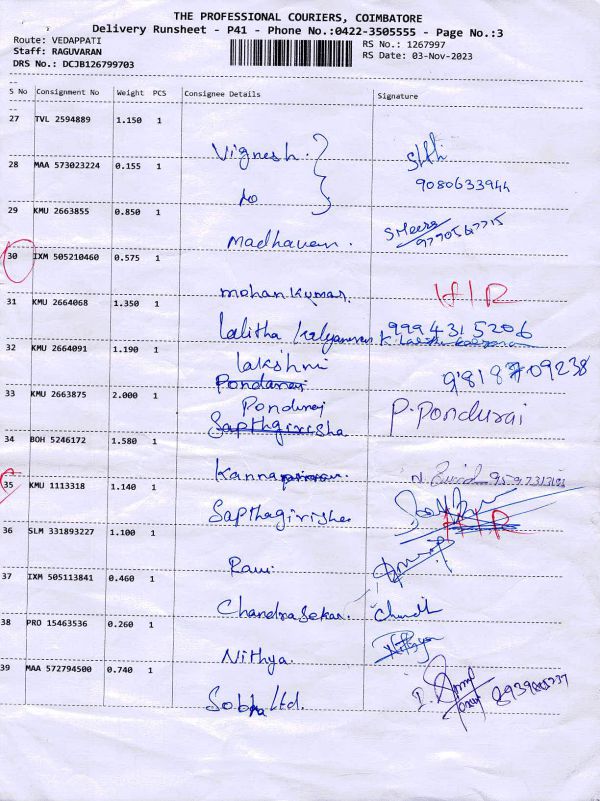 THE PROFESSIONAL COURIERS, COIMBATORE
Delivery Runsheet - P41 - Phone No.:0422-3505555 - Page No.:3
Route: VEDAPPATI RS No.: 1267997
Staff: RAGUVARAN RS Date: 03-Nov-2023
DRS No.: DCJB126799703
S No Consignment No Weight PCS Consignee Details Signature
27 TVL 2594889 1.150 1
Vignesh
28 MAA 573023224 0.155 1
9080633944
do
29 KMU 2663855 0.850 1
Madhavan.
30 IXM 505210460 0.575 1
mohan Kumar.
31 KMU 2664068 1.350 1
Lalitha 9994315206
32 KMU 2664091 1.190 1
Lakshmi
33 KMU 2663875 2.000 1
Sapthagirisha P. Pondurai
34 BOH 5246172 1.580 1
35 KMU 1113318 1.140 1
Sapthagirisha
36 SLM 331893227 1.100 1
Ravi
37 IXM 505113841 0.460 1
Chandrasekar.
38 PRO 15463536 0.260 1
Nithya.
39 MAA 572794500 0.740 1
Sobha Ltd.